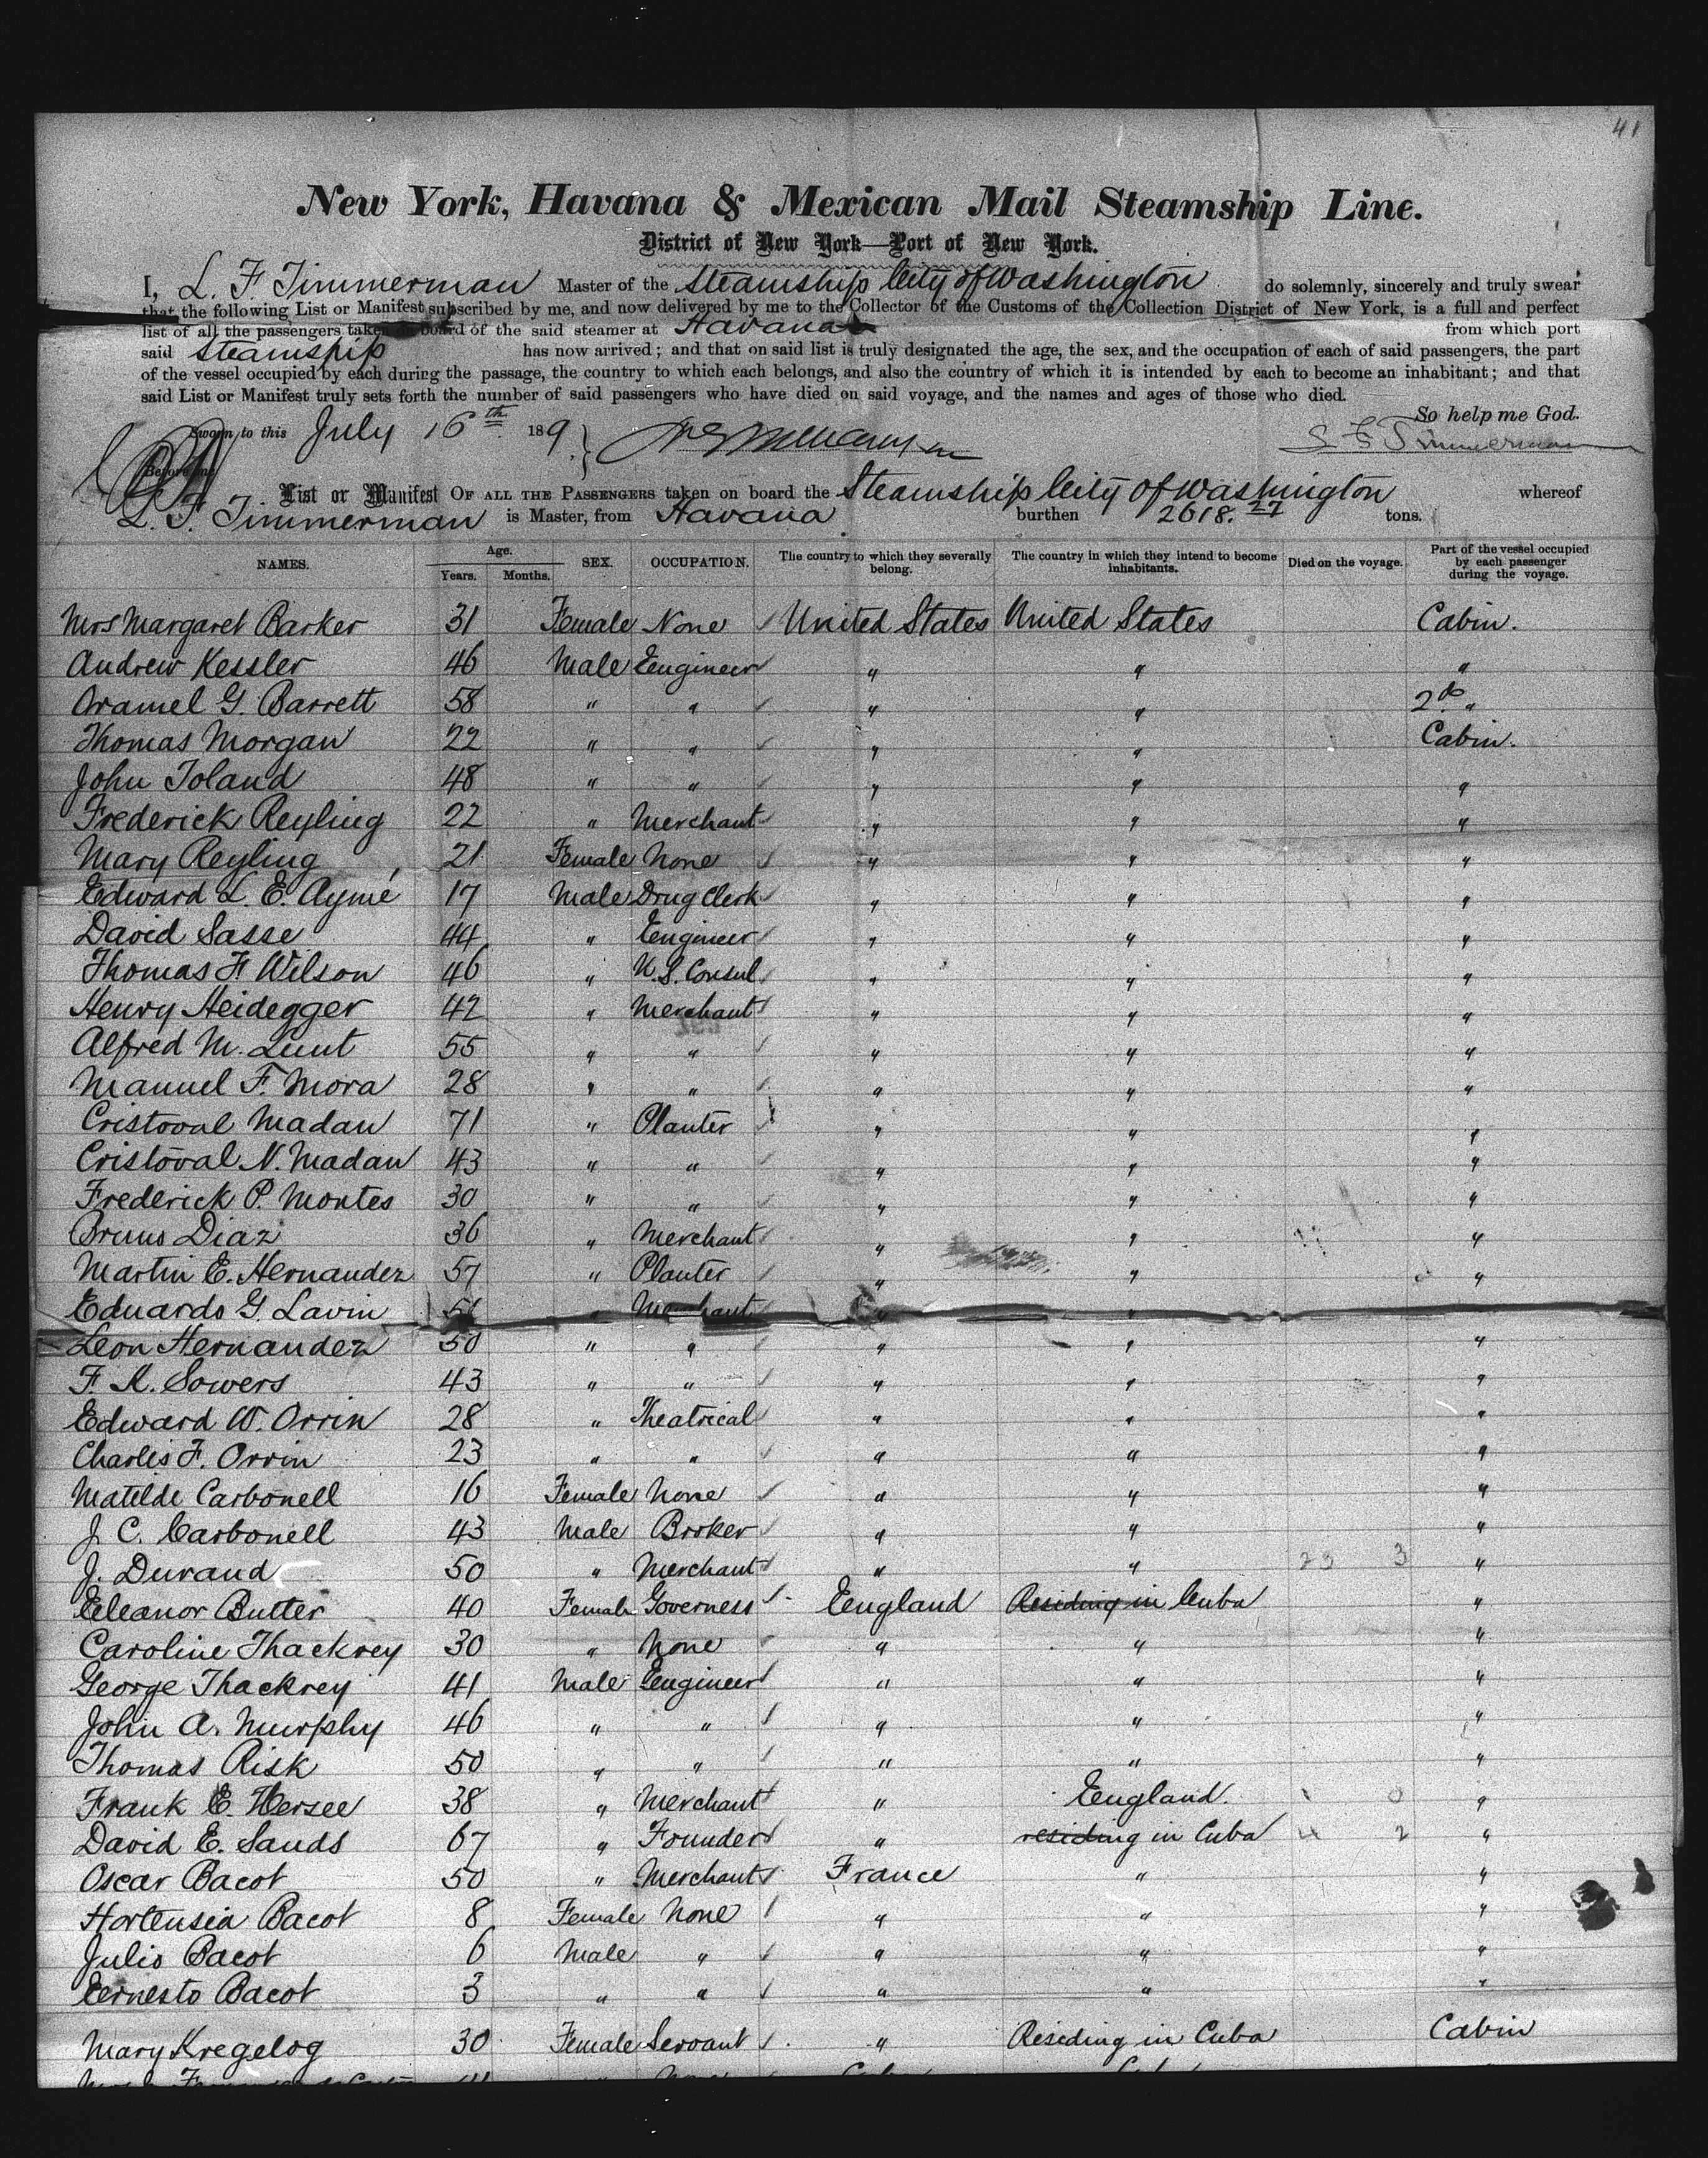 41
New York, Havana & Mexican Mail Steamship Line.
District of New York—Port of New York.
I, L. F. Timmerman Master of the Steamship City of Washington do solemnly, sincerely and truly swear
that the following List or Manifest subscribed by me, and now delivered by me to the Collector of the Customs of the Collection District of New York, is a full and perfect
list of all the passengers taken on board of the said steamer at Havana from which port
said Steamship has now arrived; and that on said list is truly designated the age, the sex, and the occupation of each of said passengers, the part
of the vessel occupied by each during the passage, the country to which each belongs, and also the country of which it is intended by each to become an inhabitant; and that
said List or Manifest truly sets forth the number of said passengers who have died on said voyage, and the names and ages of those who died.
So help me God.
Sworn to this July 16th 189 L F Timmerman
Before me
List or Manifest OF ALL THE PASSENGERS taken on board the Steamship City of Washington whereof
L. F. Timmerman is Master, from Havana burthen 2618.27 tons.
NAMES. Age. Years. Months. SEX. OCCUPATION. The country to which they severally belong. The country in which they intend to become inhabitants. Died on the voyage. Part of the vessel occupied by each passenger during the voyage.
Mrs Margaret Barker 31 Female None United States United States Cabin.
Andrew Kessler 46 Male Engineer " " "
Oramel G. Barrett 58 " " " " 2do "
Thomas Morgan 22 " " " " Cabin.
John Toland 48 " " " " "
Frederick Reyling 22 " Merchant " " "
Mary Reyling 21 Female None " " "
Edward L. E. Aymé 17 Male Drug Clerk " " "
David Sasse 44 " Engineer " " "
Thomas F. Wilson 46 " U.S. Consul " " "
Henry Heidegger 42 " Merchant " " "
Alfred M. Lunt 55 " " " " "
Manuel F. Mora 28 " " " " "
Cristoval Madan 71 " Planter " " "
Cristóval N. Madan 43 " " " " "
Frederick P. Montes 30 " " " " "
Bruno Diaz 36 " Merchant " " "
Martin E. Hernandez 57 " Planter " " "
Eduardo G. Lavin " Merchant " "
Leon Hernandez 50 " " " " "
F. A. Sowers 43 " " " " "
Edward W. Orrin 28 " Theatrical " " "
Charles F. Orrin 23 " " " " "
Matilde Carbonell 16 Female None " " "
J. C. Carbonell 43 Male Broker " " "
J. Durand 50 " Merchant " " 23 3 "
Eleanor Butter 40 Female Governess England Residing in Cuba "
Caroline Thackrey 30 " None " " "
George Thackrey 41 Male Engineer " " "
John A. Murphy 46 " " " " "
Thomas Risk 50 " " " " "
Frank E. Hersee 38 " Merchant " England. 1 0 "
David E. Sands 67 " Founder " residing in Cuba 4 2 "
Oscar Bacot 50 " Merchant France " "
Hortensia Bacot 8 Female None " " "
Julio Bacot 6 Male " " " "
Ernesto Bacot 3 " " " " "
Mary Kregelog 30 Female Servant " Residing in Cuba Cabin